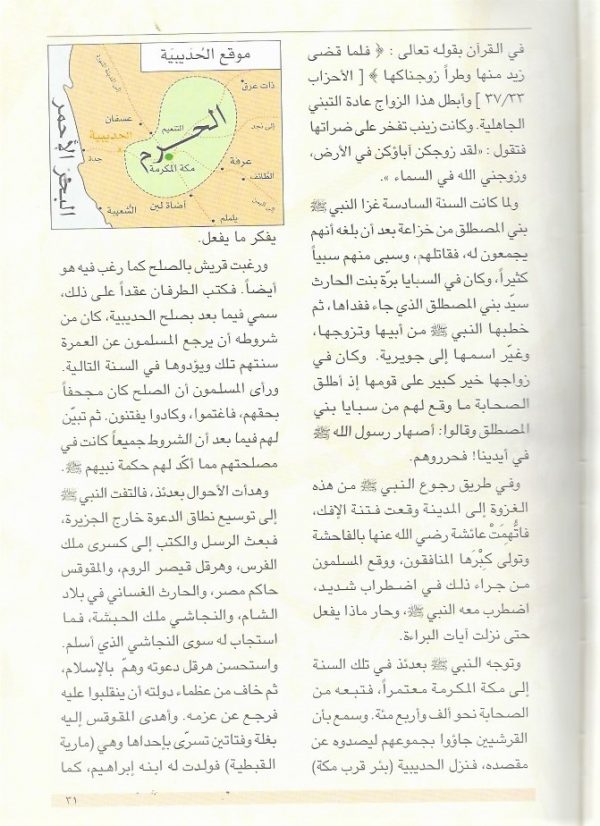 في القرآن بقوله تعالى : ﴿ فلما قضى
زيد منها وطراً زوجناكها ﴾ [ الأحزاب
٣٧/٣٣ ] وأبطل هذا الزواج عادة التبني
الجاهلية. وكانت زينب تفخر على ضراتها
فتقول : «لقد زوجكن آباؤكن في الأرض،
وزوجني الله في السماء ».
ولما كانت السنة السادسة غزا النبي ﷺ
بني المصطلق من خزاعة بعد أن بلغه أنهم
يجمعون له، فقاتلهم، وسبى منهم سبياً
كثيراً، وكان في السبايا برّة بنت الحارث
سيّد بني المصطلق الذي جاء ففداها، ثم
خطبها النبي ﷺ من أبيها وتزوجها،
وغيّر اسمها إلى جويرية. وكان في
زواجها خير كبير على قومها إذ أطلق
الصحابة ما وقع لهم من سبايا بني
المصطلق وقالوا: أصهار رسول الله ﷺ
في أيدينا! فحرروهم.
وفي طريق رجوع النبي ﷺ من هذه
الغزوة إلى المدينة وقعت فتنة الإفك،
فاتُّهِمَتْ عائشة رضي الله عنها بالفاحشة
وتولى كِبْرَها المنافقون، ووقع المسلمون
من جراء ذلك في اضطراب شديد،
اضطرب معه النبي ﷺ، وحار ماذا يفعل
حتى نزلت آيات البراءة.
وتوجه النبي ﷺ بعدئذ في تلك السنة
إلى مكة المكرمة معتمراً، فتبعه من
الصحابة نحو ألف وأربع مئة. وسمع بأن
القرشيين جاؤوا بجموعهم ليصدوه عن
مقصده، فنزل الحديبية (بئر قرب مكة)
موقع الحُدَيبيَة
ذات عرق
إلى نجد
عسفان
الحديبية
التنعيم
الحرم
جدة
مكة المكرمة
عرفة
الطائف
أضاة لبن
الشعيبة
يلملم
البحر الأحمر
يفكر ما يفعل.
ورغبت قريش بالصلح كما رغب فيه هو
أيضاً. فكتب الطرفان عقداً على ذلك،
سمي فيما بعد بصلح الحديبية، كان من
شروطه أن يرجع المسلمون عن العمرة
سنتهم تلك ويؤدوها في السنة التالية.
ورأى المسلمون أن الصلح كان مجحفاً
بحقهم، فاغتموا، وكادوا يفتنون. ثم تبيّن
لهم فيما بعد أن الشروط جميعاً كانت في
مصلحتهم مما أكّد لهم حكمة نبيهم ﷺ.
وهدأت الأحوال بعدئذ، فالتفت النبي ﷺ
إلى توسيع نطاق الدعوة خارج الجزيرة،
فبعث الرسل والكتب إلى كسرى ملك
الفرس، وهرقل قيصر الروم، والمقوقس
حاكم مصر، والحارث الغساني في بلاد
الشام، والنجاشي ملك الحبشة، فما
استجاب له سوى النجاشي الذي أسلم.
واستحسن هرقل دعوته وهمّ بالإسلام،
ثم خاف من عظماء دولته أن ينقلبوا عليه
فرجع عن عزمه. وأهدى المقوقس إليه
بغلة وفتاتين تسرّى بإحداها وهي (مارية
القبطية) فولدت له ابنه إبراهيم، كما
٣١